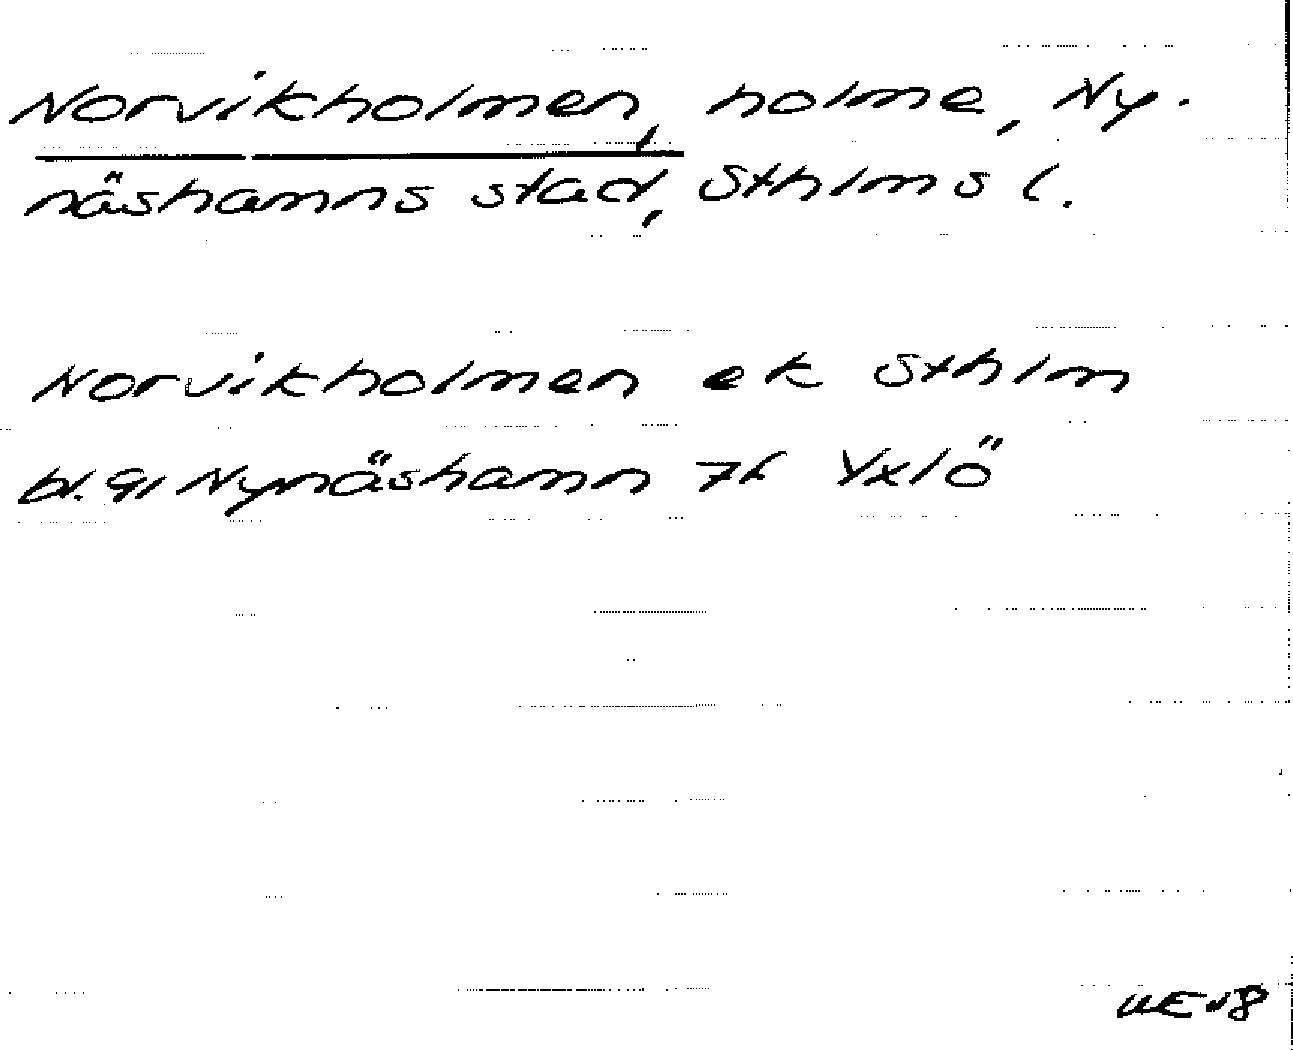 Norvikholmen, holme, Ny.
näshamns stad, Sthlms l.
Norvikholmen ek Sthlm
bl. 91 Nynäshamn 7h Yxlö